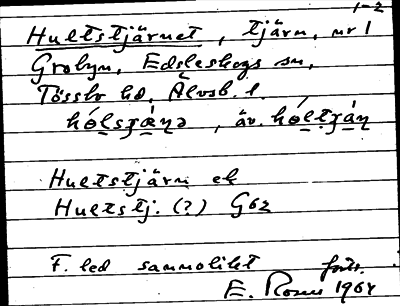 1-2
Hultstjärnet, tjärn, nr 1
Grobyn, Edsleskogs sn,
Tössbo hd, Älvsb. l.
hólsʒæ̀nə, äv. hóltʒáɳ
Hultstjärn ek
Hultstj. (?) G62
F. led sannolikt forts.
E. Rosus 1964